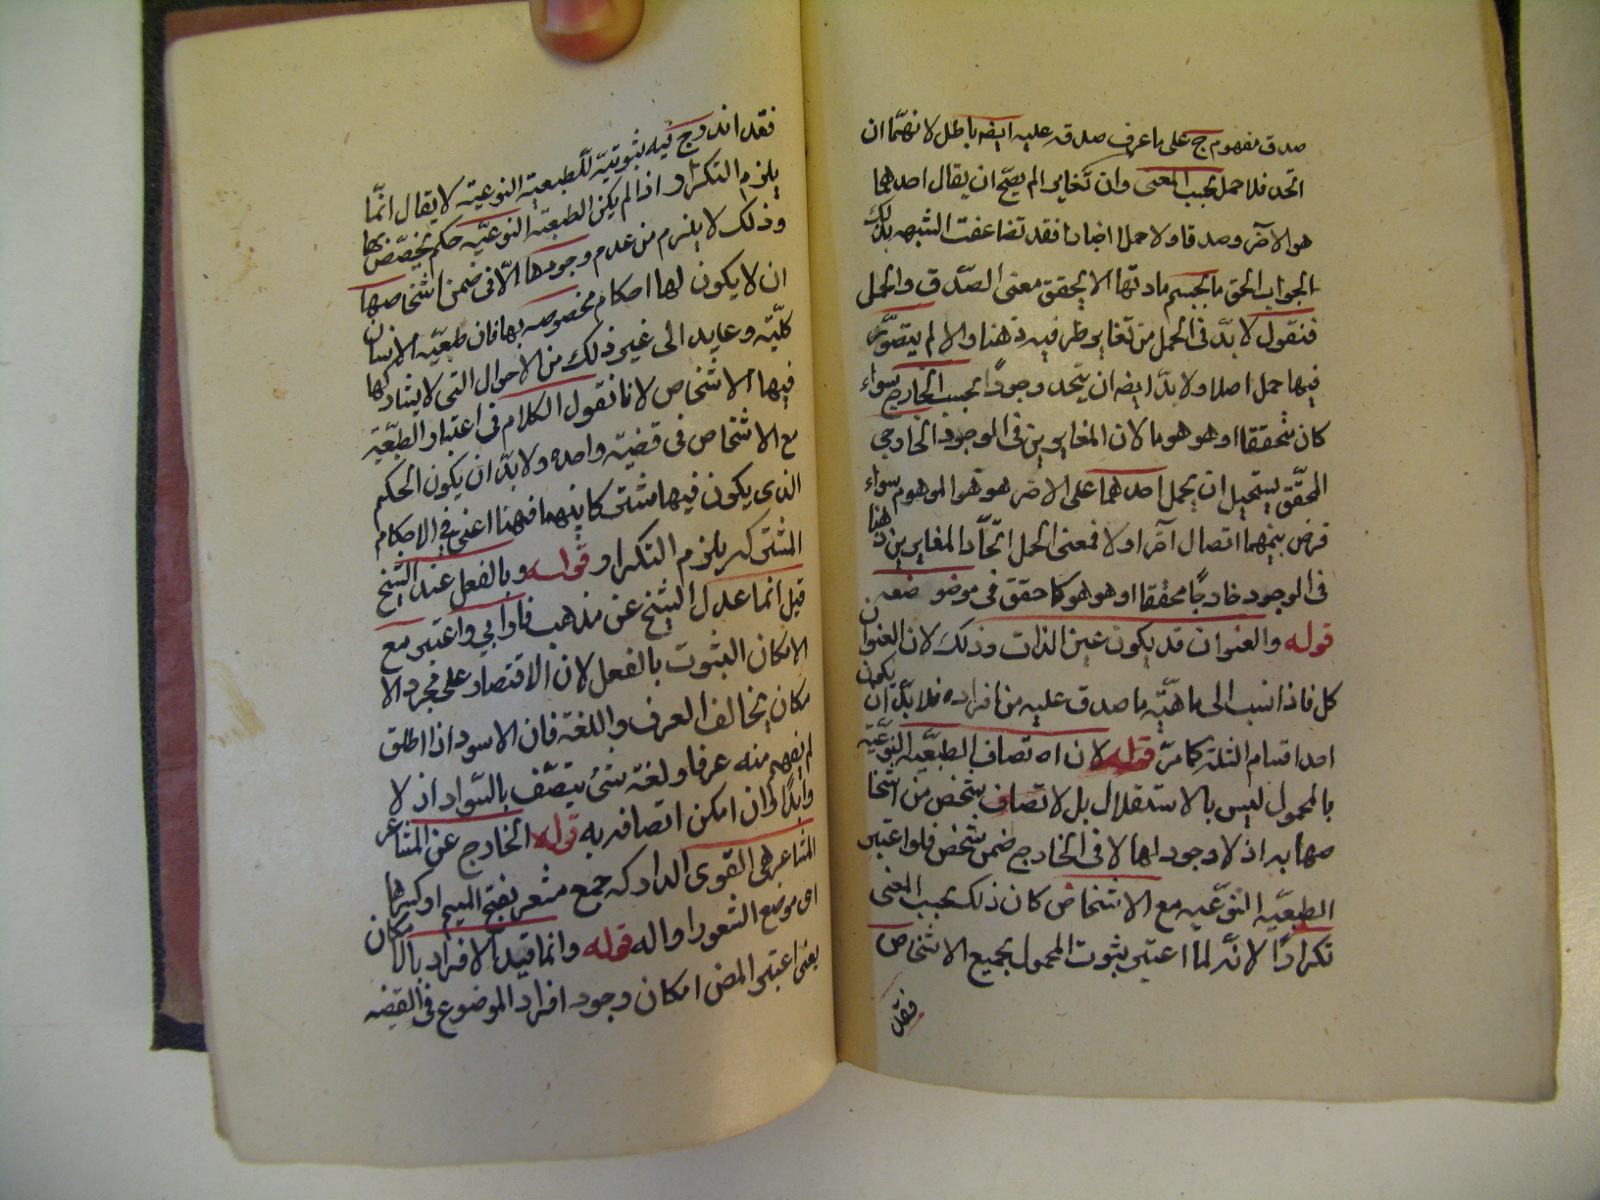 صدق مفهوم ج على ما عرف صدقه عليه ايضه باطل لانهما ان
اتحد فلا حمل بحسب المعنى وان تغايرا لم يصح ان يقال احدهما
هو الآخر وصدقا ولا حملا اخبارا فقد تضاعفت الشبهه بذلك
الجواب الحق ما يحسم مادتها الا بتحقق معنى الصدق والحمل
فنقول لا بدّ فى الحمل من تغاير طرفيه ذهنا والا لم يتصوّر
فيها حمل اصلا ولا بدّ ايضه ان يتحد وجودًا بحسب الخارج سواء
كان محققا او هو هوما لان المغايرين فى الموجود الخارجي
المحقّق يستحيل ان يحمل احدهما على الاخر هو هو الموهوم سواء
فرض بينهما اتصال آخر او لا فمعنى الحمل اتحاد المغايرين ذهنا
فى الوجود خارجًا محققا او هو هو كما حقق فى موضوضعه
قوله والعنوان قد يكون عين الذات وذلك لان العنوان
كل فاذا نسب الى ماهيّه ما صدق عليه من افراده فلا بدّ ان يكون
احد اقسام الثلثه كما مرّ قوله لان اه تصاف الطبعيّه النوعيّة
بالمحمول ليس بالاستقلال بل لاتصاف شخص من اشخا
صها به اذ لا وجود لها الا فى الخارج ضمن شخص فلو اعتبر
الطبعيّه النوعيّه مع الاشخاص كان ذلك بحسب المعنى
تكرارًا لانّه لما اعتبر ثبوت المحمول لجميع الاشخاص
فقد
فقد اندرج فيه ثبوتيّه للطبعية النوعيّه لا يقال انّما
يلزم التكرار اذا لم يكن الطبعيّه النوعيّه حكم يخصّص بها
وذلك لا يلزم من عدم وجودها الّا فى ضمن اشخاصها
ان لا يكون لها احكام مخصوصه بها فان طبعيّه الانسان
كليّة وعايد الى غير ذلك من الاحوال التى لا يشاركها
فيها الاشخاص لانا نقول الكلام فى اعتبار الطبعيّة
مع الاشخاص فى قضيّه واحده ولا بدّ ان يكون الحكم
الذى يكون فيها مشتركا بينهما فهنا اعنى فى الاحكام
المشتركه يلزم التكرار قوله وبالفعل عند الشيخ
قيل انما عدل الشيخ عن مذهب فارابي واعتبر مع
الامكان الثبوت بالفعل لان الاقتصار على مجرد الا
مكان يخالف العرف واللغة فان الاسود اذا اطلق
لم يفهم منه عرفا ولغة شئ يتصّف بالسّواد اذ لا
وابدًا وان امكن اتصافه به قوله الخارج عن المشاعر
المشاعر هى القوى الداركه جمع مشعر بفتح الميم او كسرها
اى موضع الشعور او اله قوله وانما قيد الافراد بالامكان
يعنى اعتبر المص امكان وجود افراد الموضوع فى القضيه